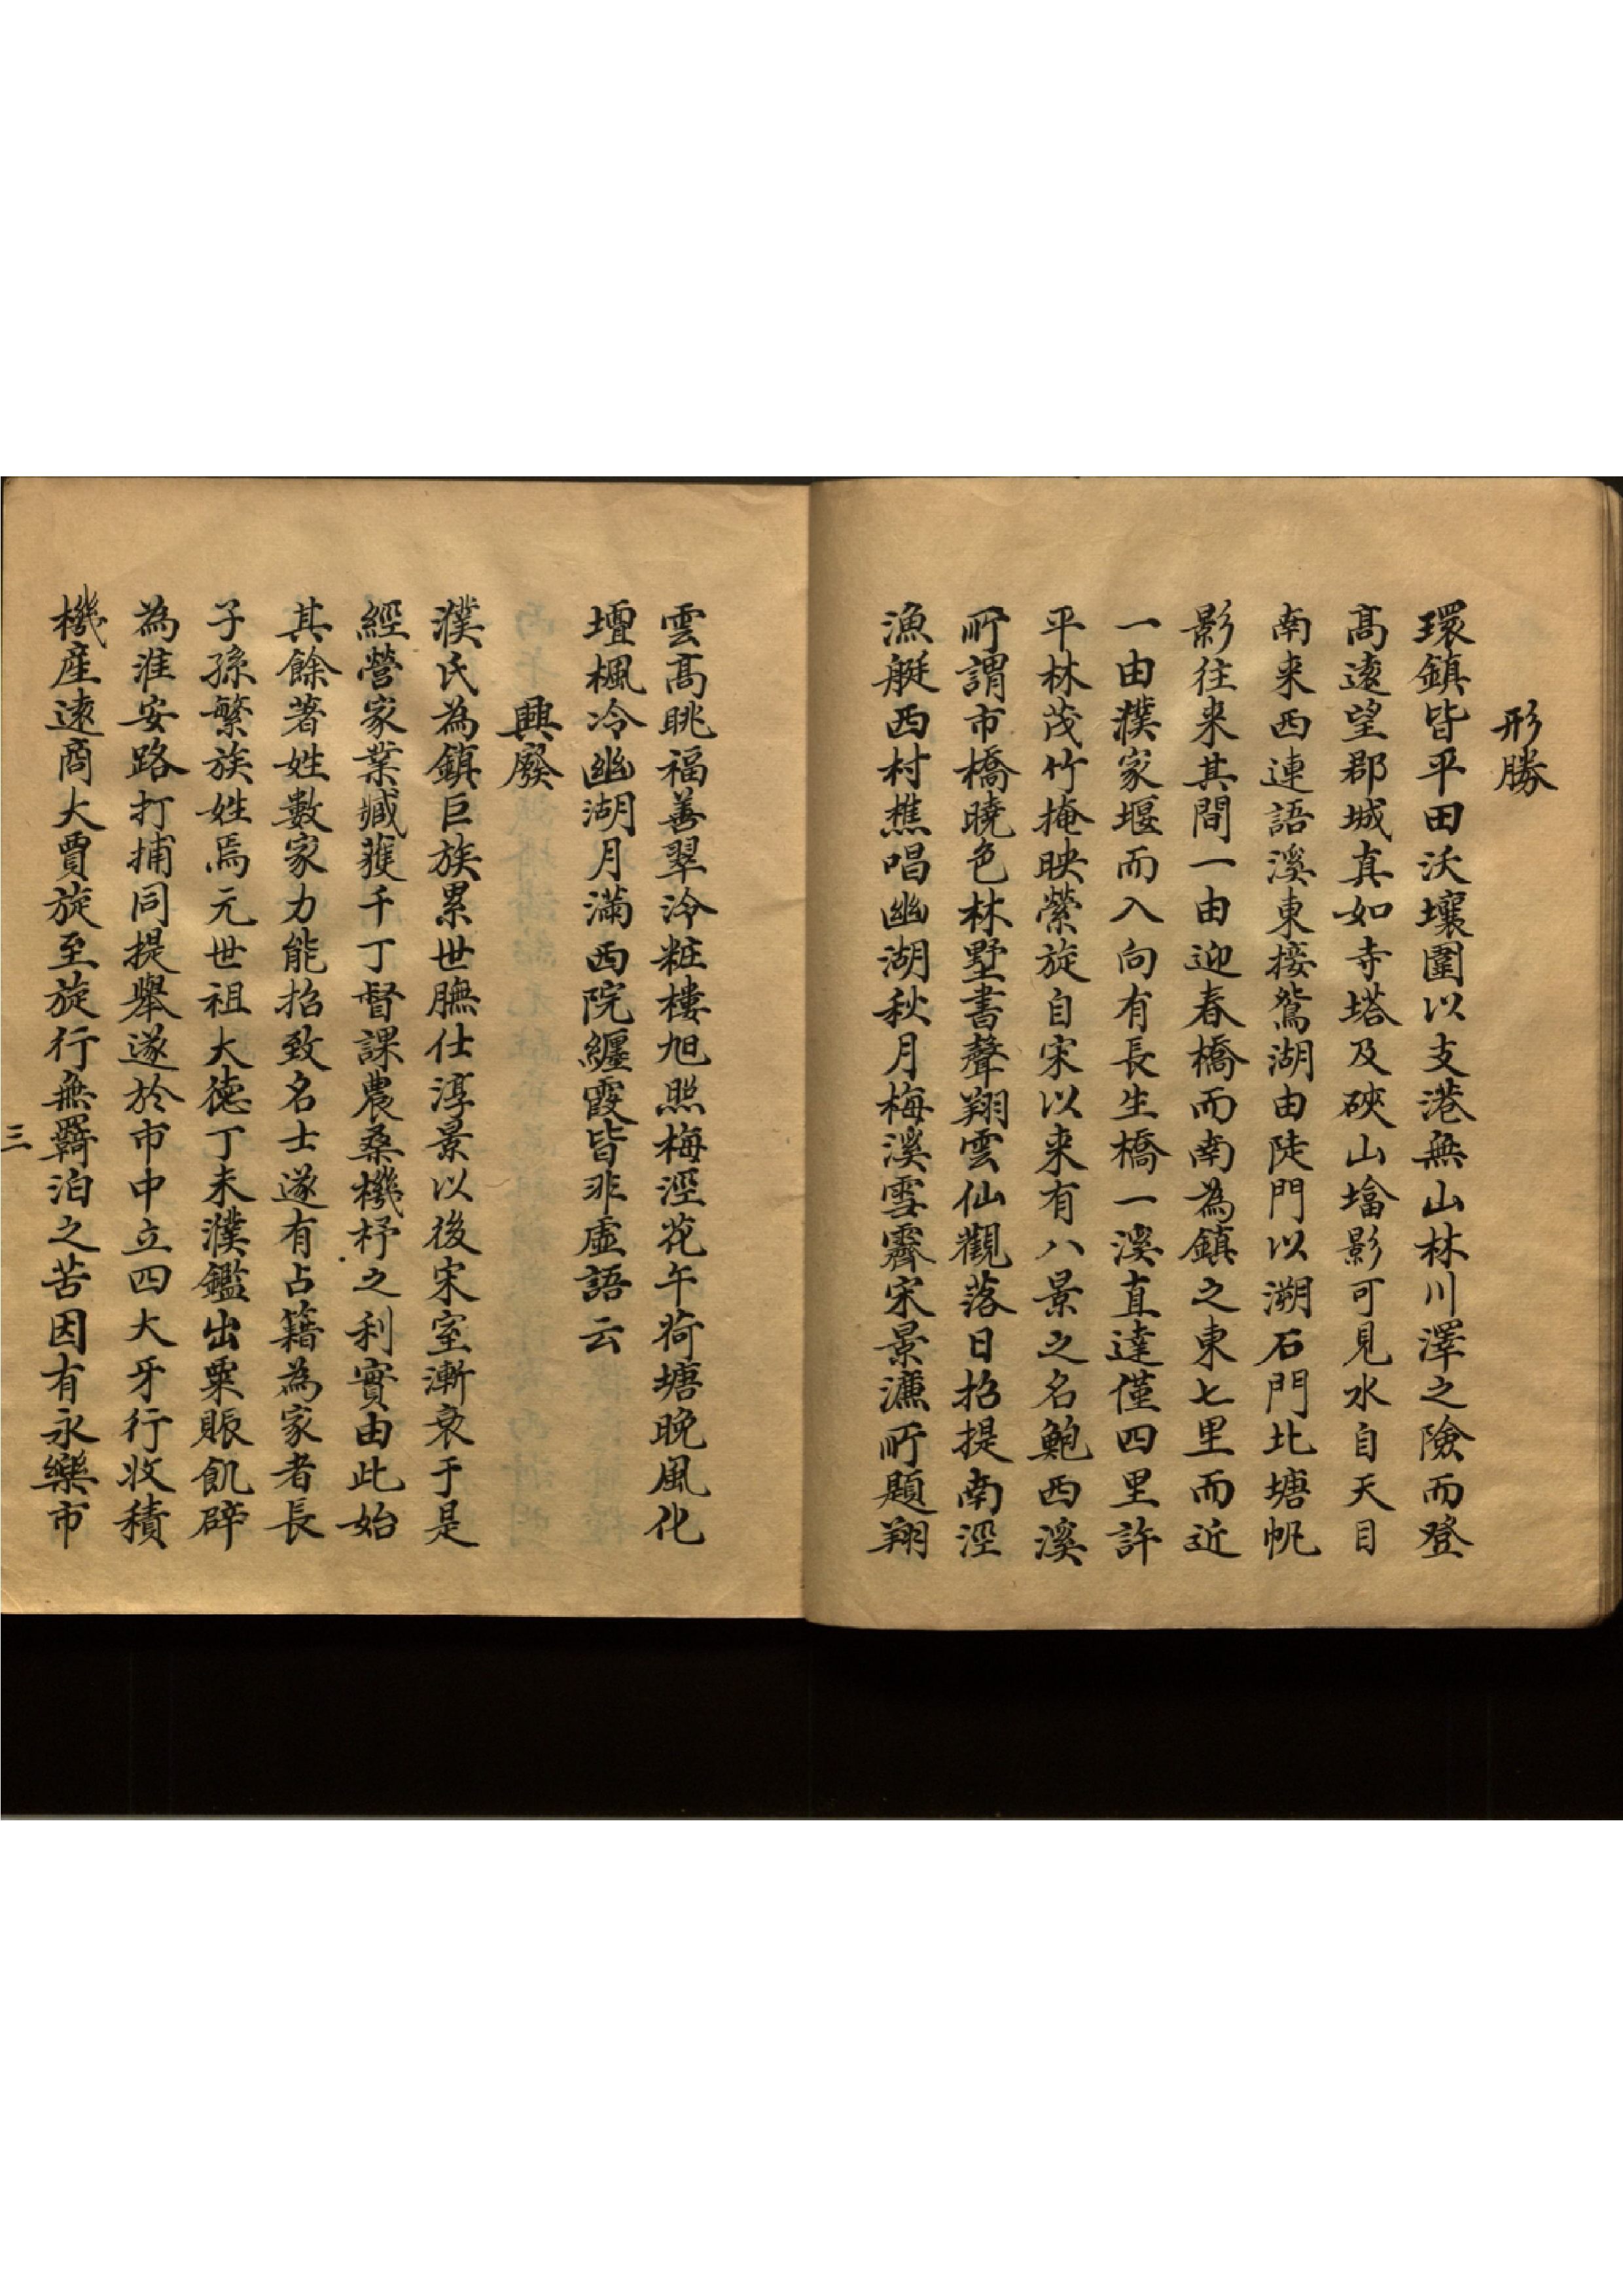 形勝
環鎮皆平田沃壤圍以支港無山林川澤之險而登
髙逺望郡城真如寺塔及硤山墖影可見水自天目
南来西連語溪東接鴛湖由陡門以溯石門北塘帆
影往来其間一由迎春橋而南為鎮之東七里而近
一由濮家堰而入向有長生橋一溪直達僅四里許
平林茂竹掩映縈旋自宋以来有八景之名鮑西溪
所謂市橋曉色林墅書聲翔雲仙觀落日招提南涇
漁艇西村樵唱幽湖秋月梅溪雪霽宋景濂所題翔
雲髙眺福善翠泠粧樓旭照梅涇花午荷塘晚風化
壇楓冷幽湖月滿西院纏霞皆非虛語云
興廢
濮氏為鎮巨族累世膴仕淳景以後宋室漸衰于是
經營家業臧獲千丁督課農桑機杼之利實由此始
其餘著姓數家力能招致名士遂有占籍為家者長
子孫繁族姓焉元世祖大德丁未濮鑑出粟賑飢辟
為淮安路打捕同提舉遂於市中立四大牙行收積
機産逺商大賈旋至旋行無羇泊之苦因有永樂市
三